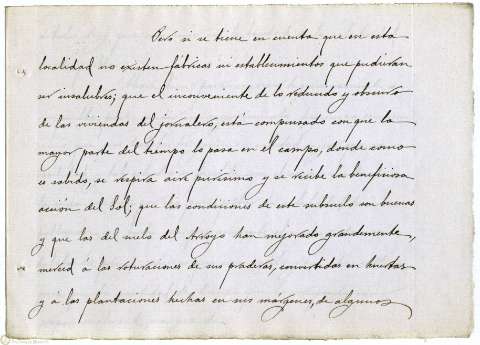 Pero si se tiene en cuenta que en esta
localidad no existen fábricas ni establecimientos que pudieran
ser insalubres; que el inconveniente de lo reducido y obscuro
de las viviendas del jornalero, está compensado con que la
mayor parte del tiempo lo pasa en el campo, donde como
es sabido, se respira aire purísimo y se recibe la beneficiosa
acción del Sol; que las condiciones de este subsuelo son buenas
y que las del suelo del Arroyo han mejorado grandemente,
merced á las roturaciones de sus praderas, convertidas en huertas
y á las plantaciones hechas en sus márgenes, de algunos